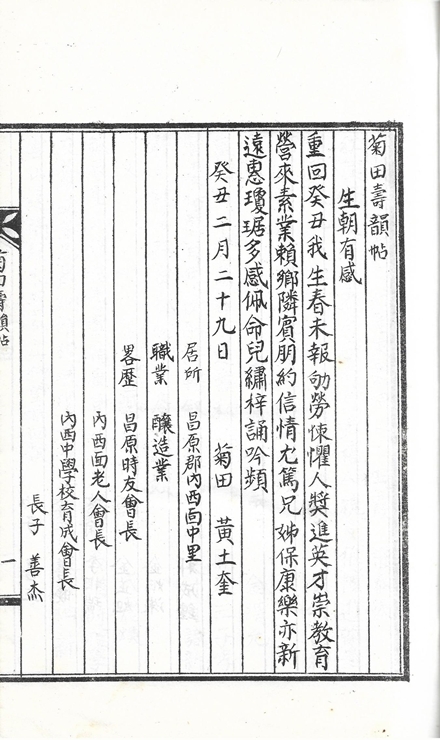 菊田壽韻帖
生朝有感
重回癸丑我生春未報劬勞悚懼人奬進英才崇教育
營來素業賴鄕隣賓朋約信情尤篤兄姊保康樂亦新
遠惠瓊琚多感佩命兒繡梓誦吟頻
癸丑二月二十九日 菊田 黃土奎
居所 昌原郡內西面中里
職業 釀造業
畧歷 昌原時友會長
內西面老人會長
內西中學校育成會長
長子 善杰
菊田壽韻帖
一